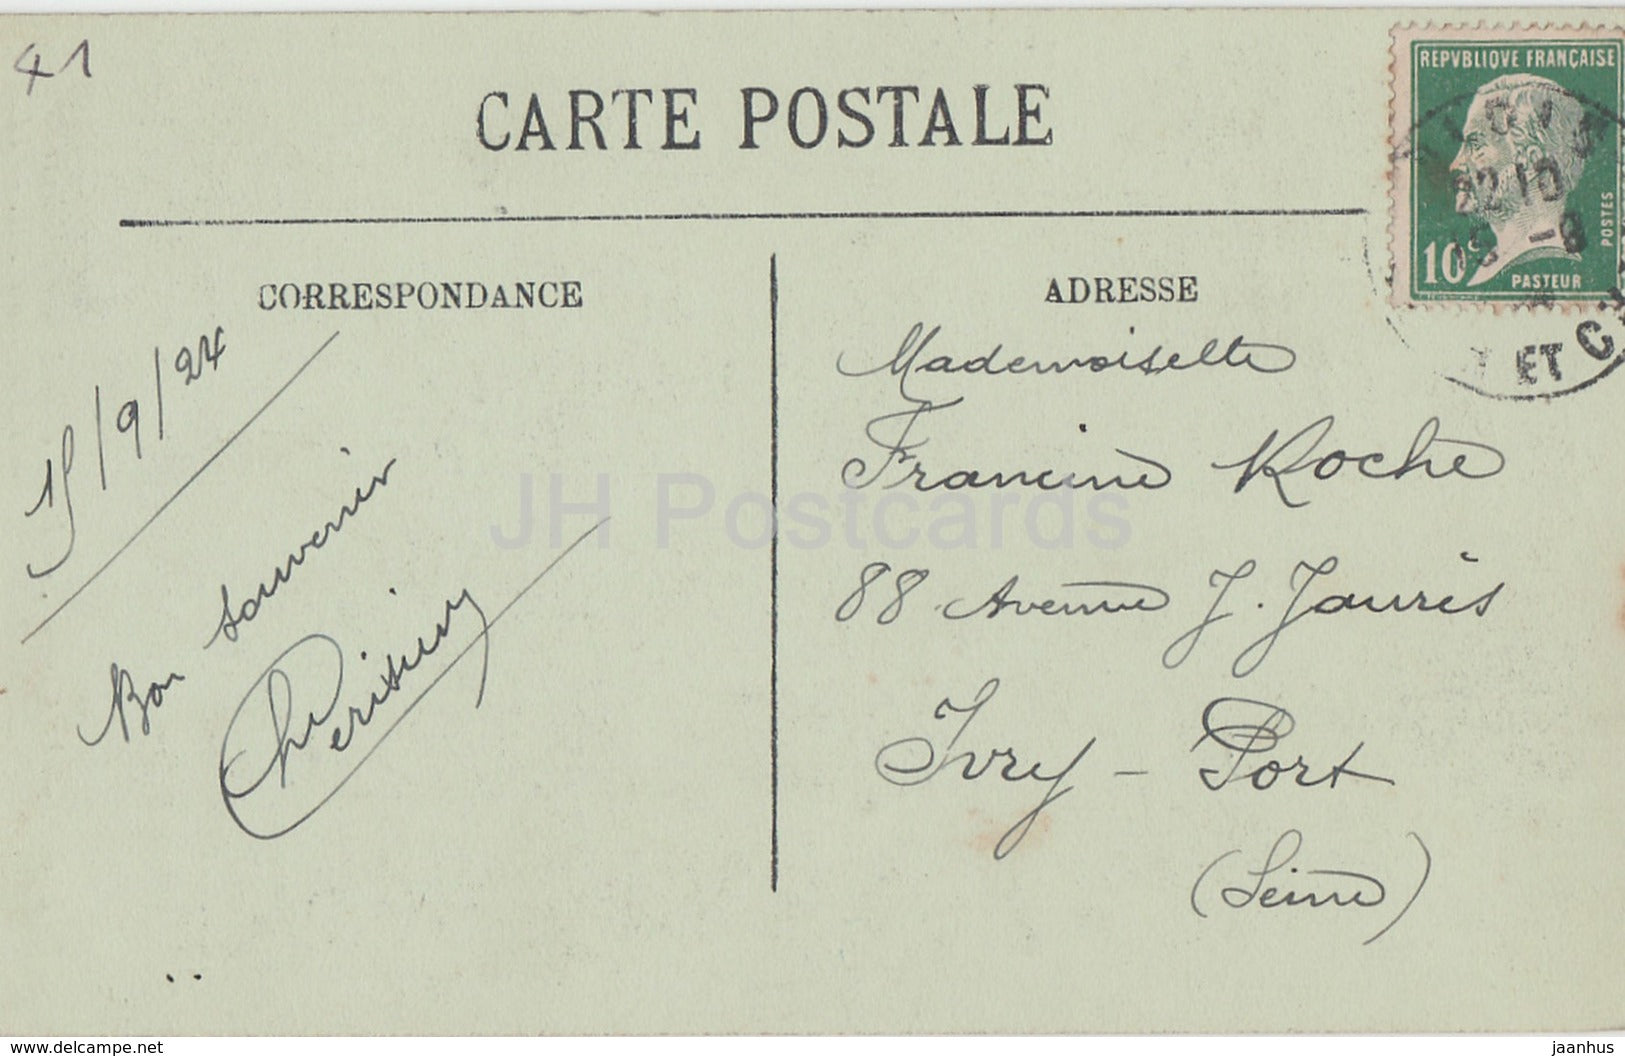 41
CARTE POSTALE
REPVBLIQVE FRANÇAISE
10c
POSTES
PASTEUR
22 10
ET
CORRESPONDANCE
15/9/24
Bon souvenir
ADRESSE
Mademoiselle
Francine Roche
88 Avenue J. Jaurès
Ivry - Port
(Seine)
JH Postcards
www.delcampe.net
jaanhus